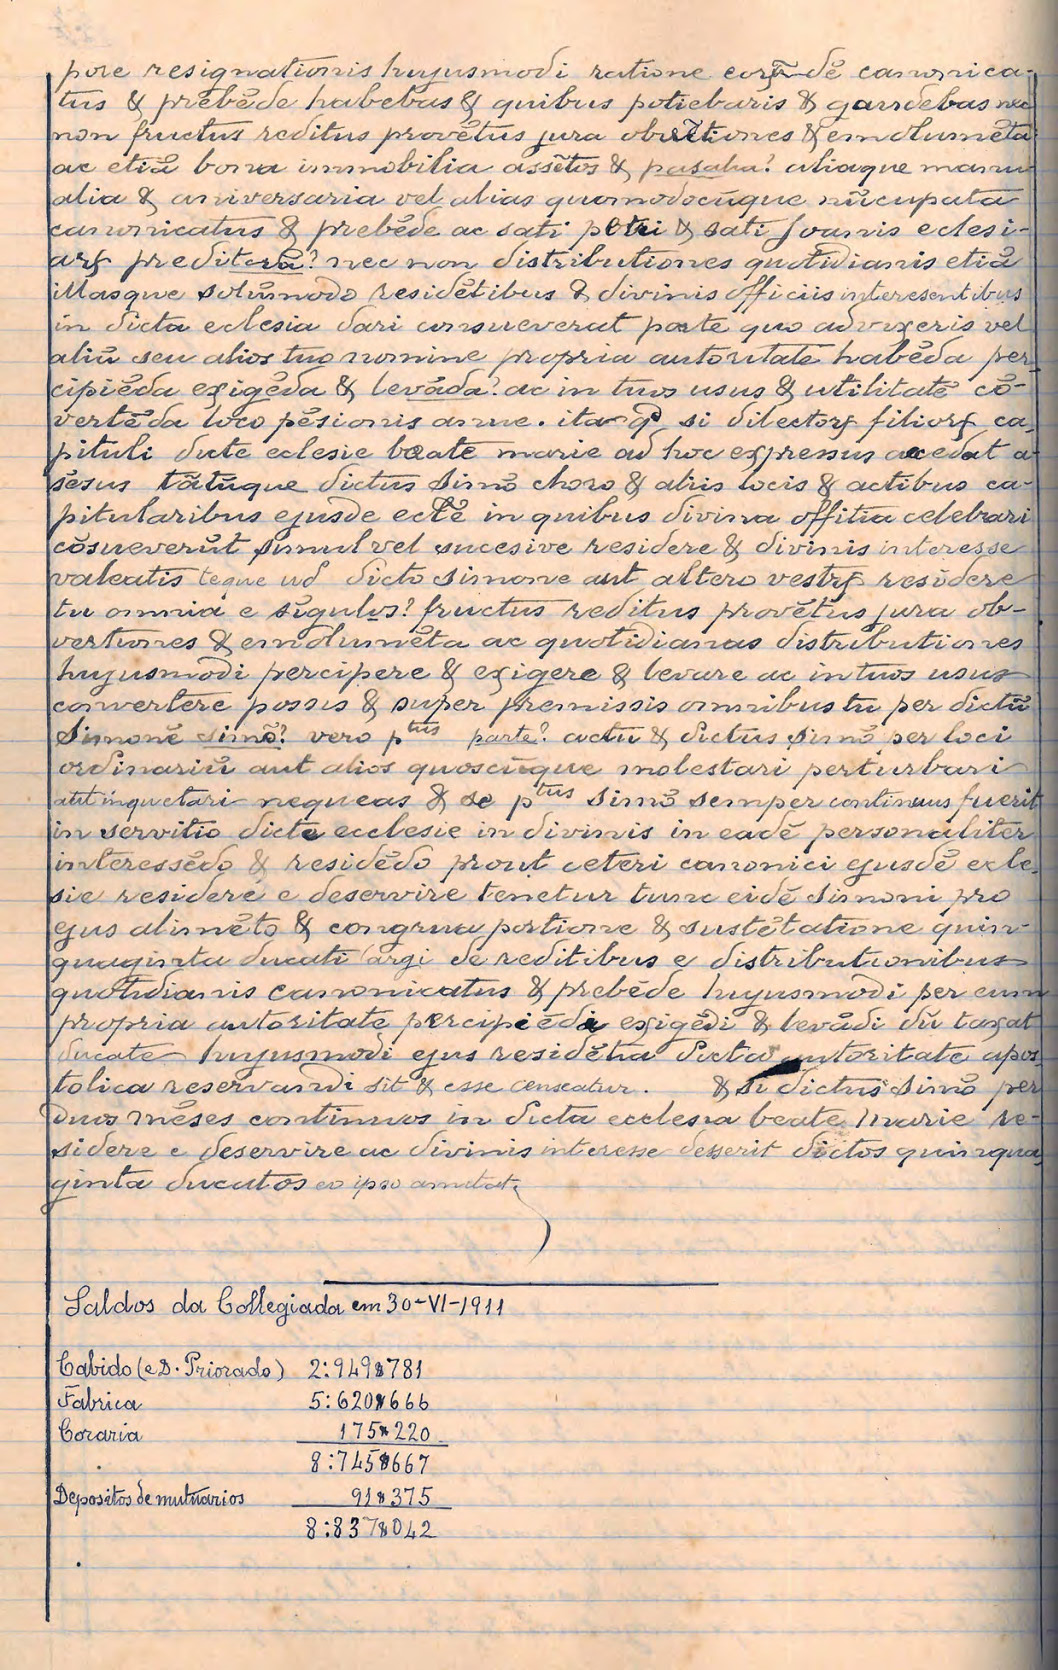 pore resignationis hujusmodi ratione corꝝdē canonica-
tus & prebēde habebas & quibus potiebaris & gaudebas nec
non fructus reditus provētus jura obvētiones & emolumēta
ac etiā bona immobilia assētos & pasalia? aliaque manu
alia & aniversaria vel alias quomodocūque nūcupata
canonicatus & prebēde ac sati petri & sati Joanis eclesi-
arꝝ preditorū? nec non distributiones quotidianis etiā
illasque solūmodo residētibus & divinis officiis interesentibus
in dicta eclesia dari consueverut parte quo advixeris vel
aliū seu alios tuo nomine propria autoritate habēda per
cipiēda exigēda & levāda? ac in tuos usus & utilitatē cō-
vertēda loco pēsionis anue. ita qd si dilectorꝝ filiorꝝ ca
pituli dicte eclesie beate marie ad hoc expressus accedat a
sēsus tātūque dictus Simō choro & aliis locis & actibus ca-
pitularibus ejusde ecłē in quibus divina offitia celebrari
cōsueverūt simul vel sucesive residere & divinis interesse
valeatis teque ud dicto simone aut altero vestrꝝ residere
tu omnia e sīgulos? fructus reditus provētus jura ob-
vertiones & emolumēta ac quotidianas distributiones
hujusmodi percipere & exigere & levare ac in tuos usus
convertere possis & super premissis omnibus tu per dictū
Simonē simō? vero p^tus parte? actu & dictus simō per loci
ordinariū aut alios quoscūque molestari perturbari
aut inquetari nequeas & se p^tus simō semper continuus fuerit
in servitio dicte ecclesie in divinis in eadē personaliter
interessēdo & residēdo prout ceteri canonici ejusdē eccle
sie residere e deservire tenetur tunc eidē simoni pro
ejus alimēto & congrua portione & sustētatione quin-
quaginta ducati argi de reditibus e distributionibus
quotidianis canonicatus & prebēde hujusmodi per eum
propria autoritate percipiēdi exigēdi & levādi dū taxat
ducate hujusmodi ejus residētia dicta autoritate apos
tolica reservandi sit & esse censeatur. & si dictus Simō per
duos mēses continuos in dicta ecclesia beate Marie re-
sidere e deservire ac divinis interesse desserit dictos quinqua
ginta ducatos eo ipso amitat
Saldos da Collegiada em 30-VI-1911
Cabido (e D. Priorado) 2:949$781
Fabrica 5:620$666
Coraria 175$220
8:745$667
Depositos de mutuarios 91$375
8:837$042